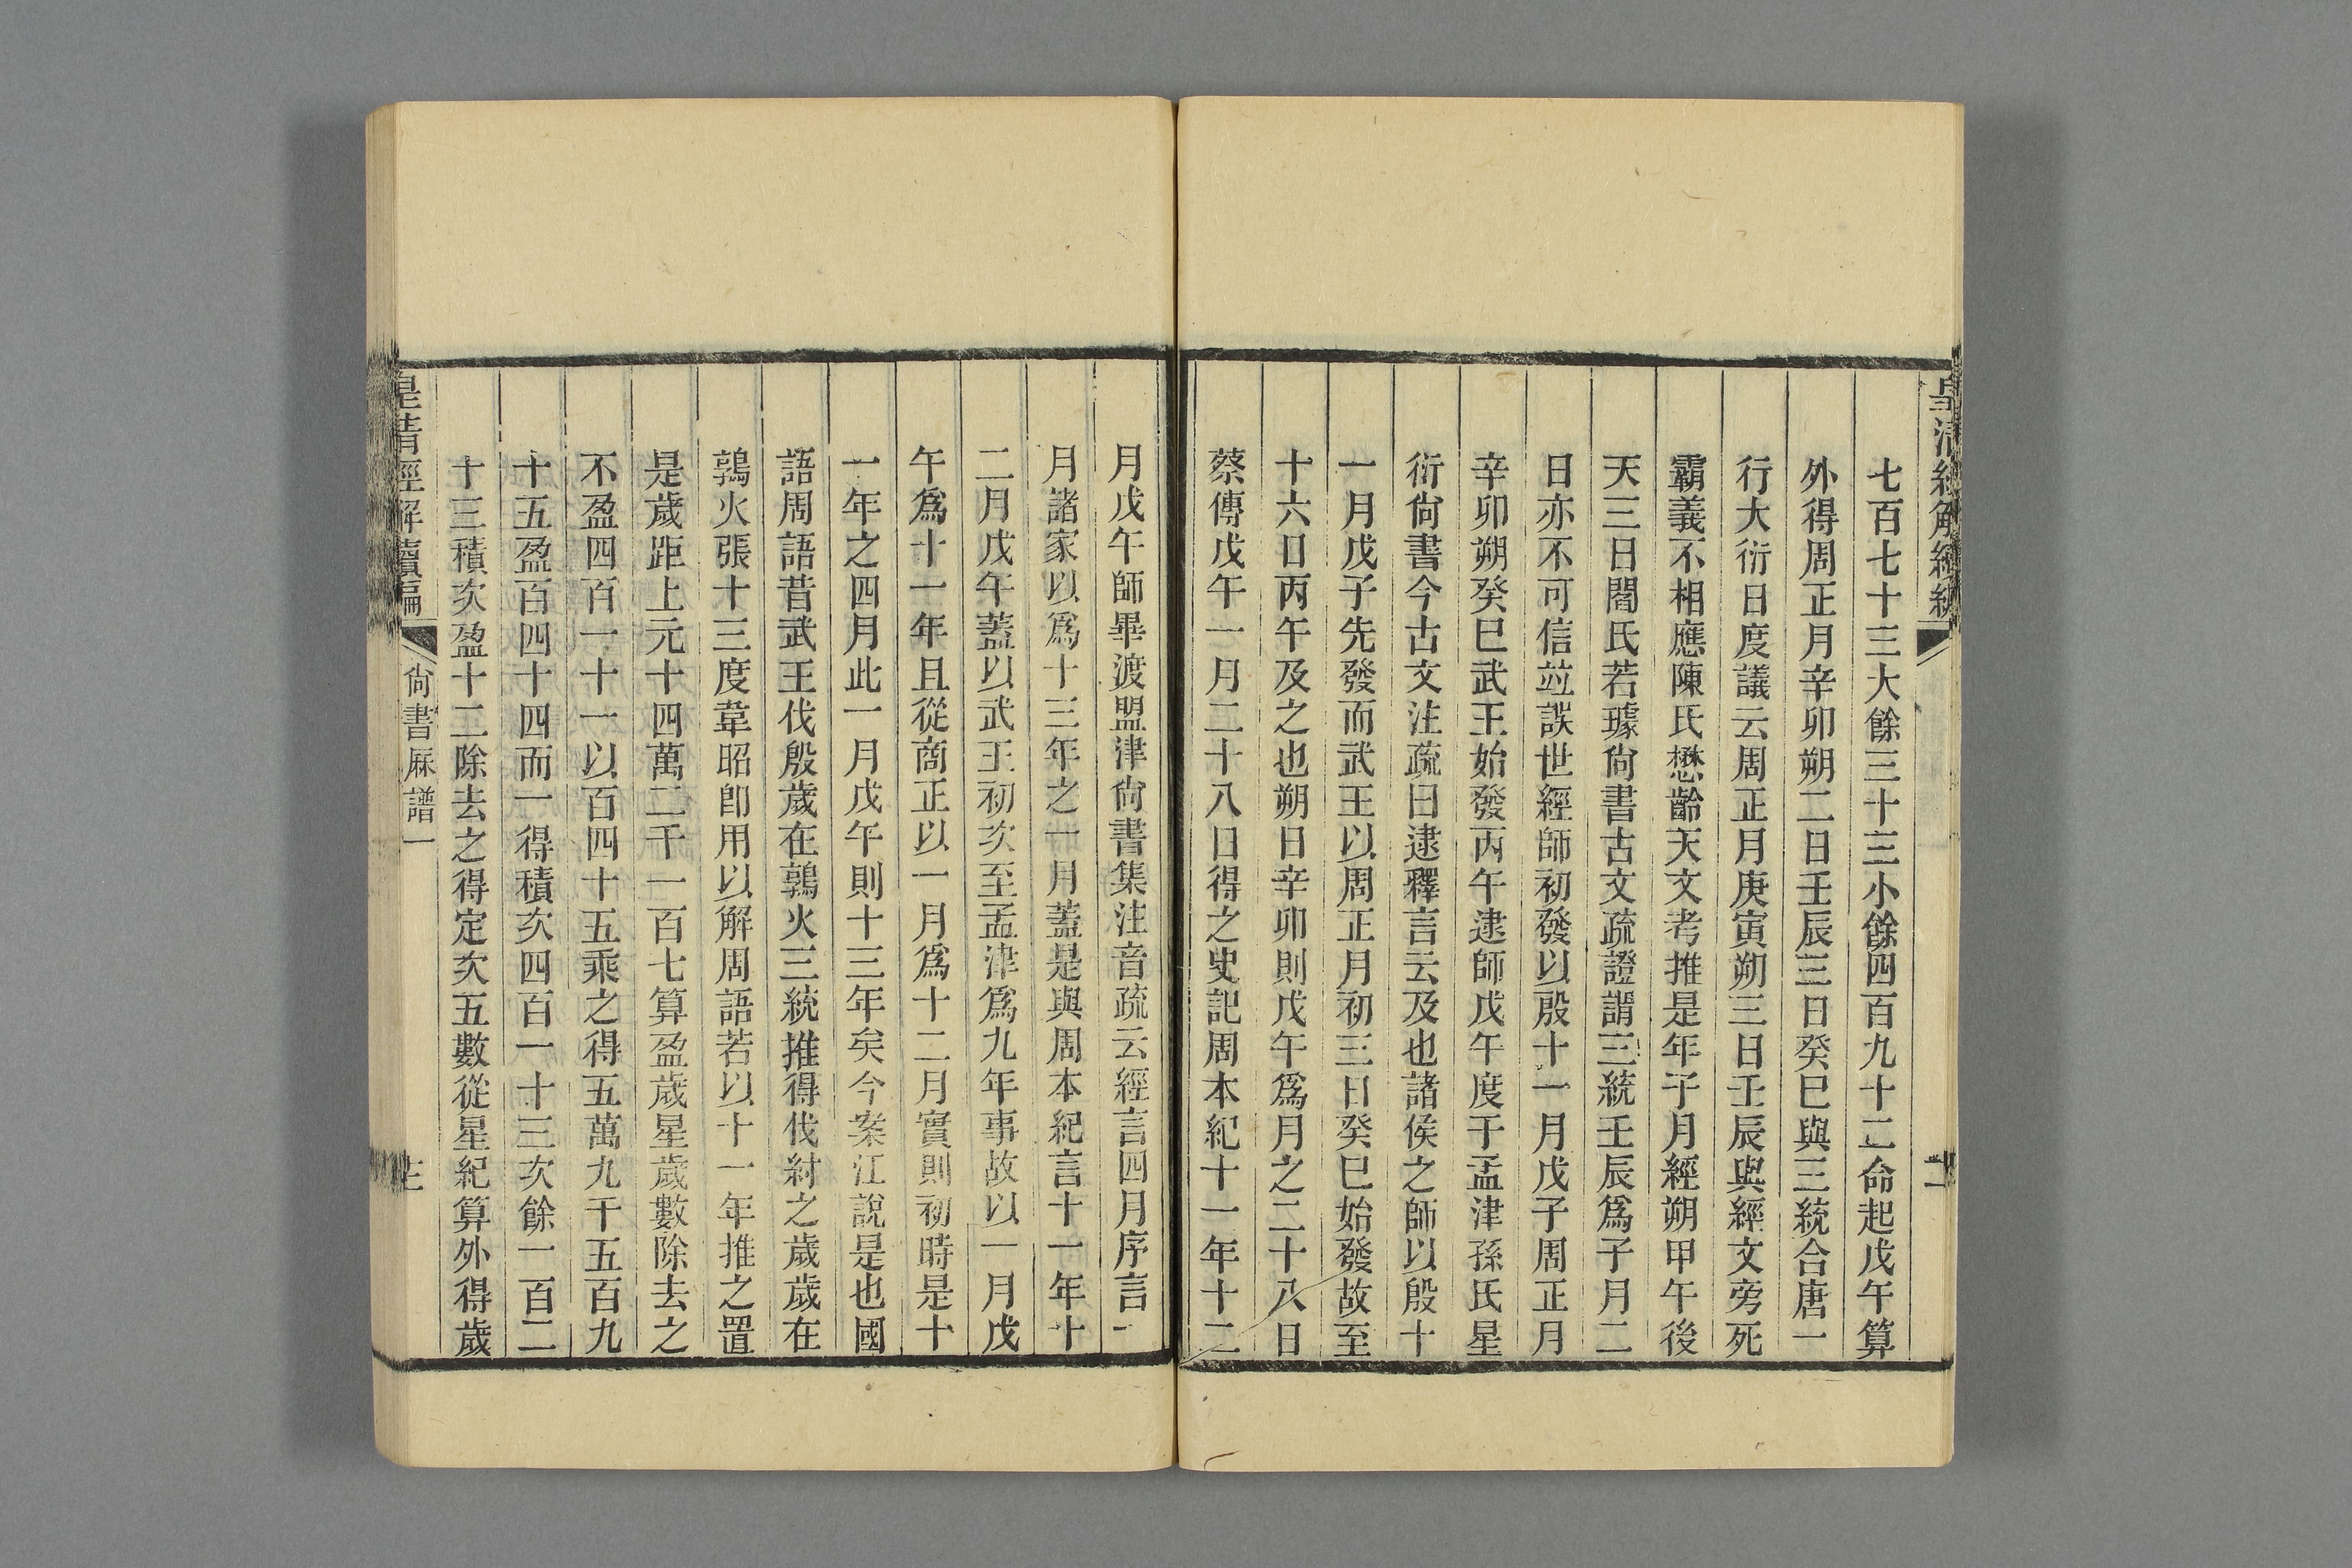 七百七十三大餘三十三小餘四百九十二命起戊午算
外得周正月辛卯朔二日壬辰三日癸巳與三統合唐一
行大衍日度議云周正月庚寅朔三日壬辰與經文旁死
霸義不相應陳氏懋齡天文考推是年子月經朔甲午後
天三日閻氏若璩尙書古文疏證謂三統壬辰爲子月二
日亦不可信竝誤世經師初發以殷十一月戊子周正月
辛卯朔癸巳武王始發丙午逮師戊午度于孟津孫氏星
衍尙書今古文注疏曰逮釋言云及也諸侯之師以殷十
一月戊子先發而武王以周正月初三日癸巳始發故至
十六日丙午及之也朔日辛卯則戊午爲月之二十八日
蔡傳戊午一月二十八日得之史記周本紀十一年十二
月戊午師畢渡盟津尙書集注音疏云經言四月序言一
月諸家以爲十三年之一月蓋是與周本紀言十一年十
二月戊午蓋以武王初次至孟津爲九年事故以一月戊
午爲十一年且從商正以一月爲十二月實則初時是十
一年之四月此一月戊午則十三年矣今案江說是也國
語周語昔武王伐殷歲在鶉火三統推得伐紂之歲歲在
鶉火張十三度韋昭卽用以解周語若以十一年推之置
是歲距上元十四萬二千一百七算盈歲星歲數除去之
不盈四百一十一以百四十五乘之得五萬九千五百九
十五盈百四十四而一得積次四百一十三次餘一百二
十三積次盈十二除去之得定次五數從星紀算外得歲
皇清經解續編
尙書厤譜一